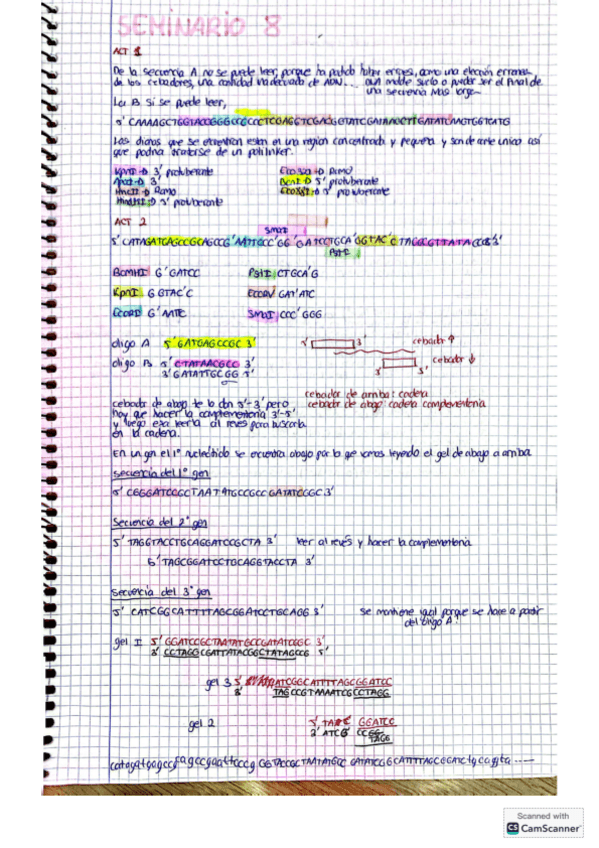 SEMINARIO 8
ACT 1
De la secuencia A no se puede leer, porque ha podido haber errores, como una elección errónea
de los cebadores, una cantidad inadecuada de ADN... aun molde sucio o puede ser el final de
una secuencia más larga
La B si se puede leer,
Las dianas que se encuentran estan en una region concentrada y pequeña y son de corte unico así
que podría tratarse de un polilinker.
KpnI → 3' protuberante
EcoRV → Romo
ApaI → 3'
BcnI → 5' protuberante
HincII → Romo
HindIII → 5' protuberante
ACT 2
SmaI
PstI
BamHI G'GATCC
PstI CTGCA'G
KpnI GGTAC'C
EcoRV GAT'ATC
EcoRI G'AATTC
SmaI CCC'GGG
oligo A 5' GATGAGCCGC 3'
cebador ↑
oligo B 5' CTATAACGCC 3'
cebador ↓
3' GATATTGCGG 5'
cebador de arriba: cadena
cebador de abajo: cadena complementaria
cebador de abajo te lo dan 5'-3' pero
hay que hacer la complementaria 3'-5'
y luego leerla al reves para buscarla
en la cadena.
En un gel el 1º nucleótido se encuentra abajo por lo que vamos leyendo el gel de abajo a arriba
Secuencia del 1º gen
5' CGGGATCCGCTAATATGCCGCCGATATCCGC 3'
Secuencia del 2º gen
5' TAGGTACCTGCAGGATCCGCTA 3' leer al revés y hacer la complementaria
5' TAGCGGATCCTGCAGGTACCTA 3'
Secuencia del 3º gen
5' CATCGGCATTTTAGCGGATCCTGCAGG 3'
se mantiene igual porque se hace a partir
del oligo A!
gel I 5' GGATCCGCTAATATGCCGATATCGGC 3'
3' CCTAGGCGATTATACGGCTATAGCCG 5'
gel 3 5' ATCGGCATTTTAGCGGATCC
3' TAGCCGTAAAATCGCCTAGG
gel 2
GGATCC